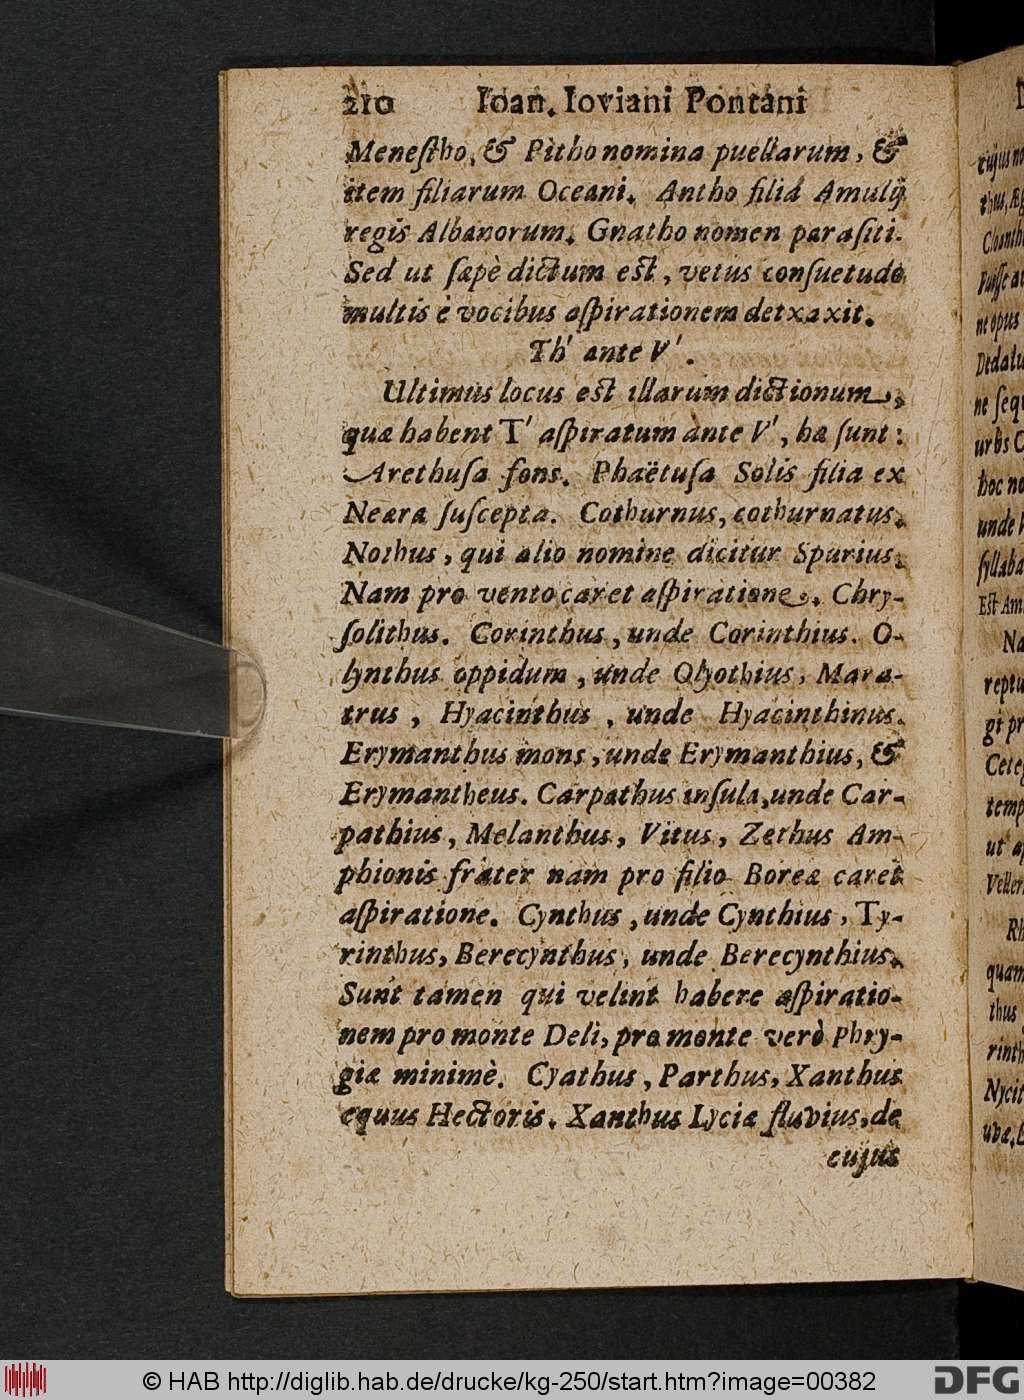 210 Ioan. Ioviani Pontani
Menestho, & Pitho nomina puellarum, &
item filiarum Oceani. Antho filia Amulij
regis Albanorum. Gnatho nomen parasiti.
Sed ut sæpè dictum est, vetus consuetudo
multis è vocibus aspirationem detxaxit.
Th' ante V'.
Ultimus locus est illarum dictionum,
quæ habent T' aspiratum ante V', hæ sunt:
Arethusa fons. Phaëtusa Solis filia ex
Neæra suscepta. Cothurnus, cothurnatus.
Nothus, qui alio nomine dicitur Spurius.
Nam pro vento caret aspiratione. Chry-
solithus. Corinthus, unde Corinthius. O-
lynthus oppidum, unde Olyothius, Mara-
trus, Hyacinthus, unde Hyacinthinus.
Erymanthus mons, unde Erymanthius, &
Erymantheus. Carpathus insula, unde Car-
pathius, Melanthus, Vitus, Zethus Am-
phionis frater nam pro filio Boreæ caret
aspiratione. Cynthus, unde Cynthius, Ty-
rinthus, Berecynthus, unde Berecynthius.
Sunt tamen qui velint habere aspiratio-
nem pro monte Deli, pro monte verò Phry-
giæ minimè. Cyathus, Parthus, Xanthus
equus Hectoris. Xanthus Lyciæ fluvius, de
cujus
© HAB http://diglib.hab.de/drucke/kg-250/start.htm?image=00382
DFG